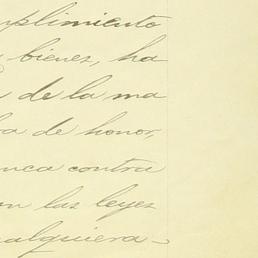 mplimiento
bienes, ha
de la ma
ra de honor,
nca contra
an las leyes
ualquiera-